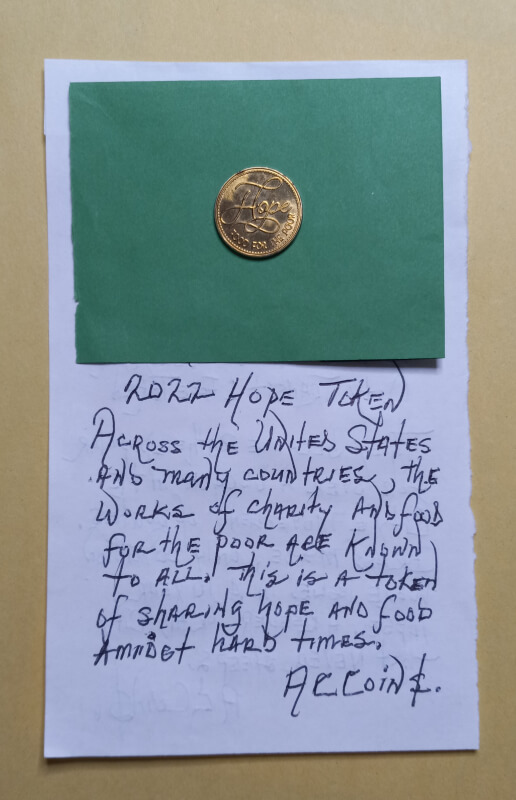 Hope
FOOD FOR THE POOR
2022 HOPE TOKEN
ACROSS the UNITED STATES
AND MANY COUNTRIES, the
WORKS of CHARITY AND food
for the POOR ARE KNOWN
to ALL. This is A token
of SHARING hope AND food
AMIDST HARD TIMES.
ACCOIN$.